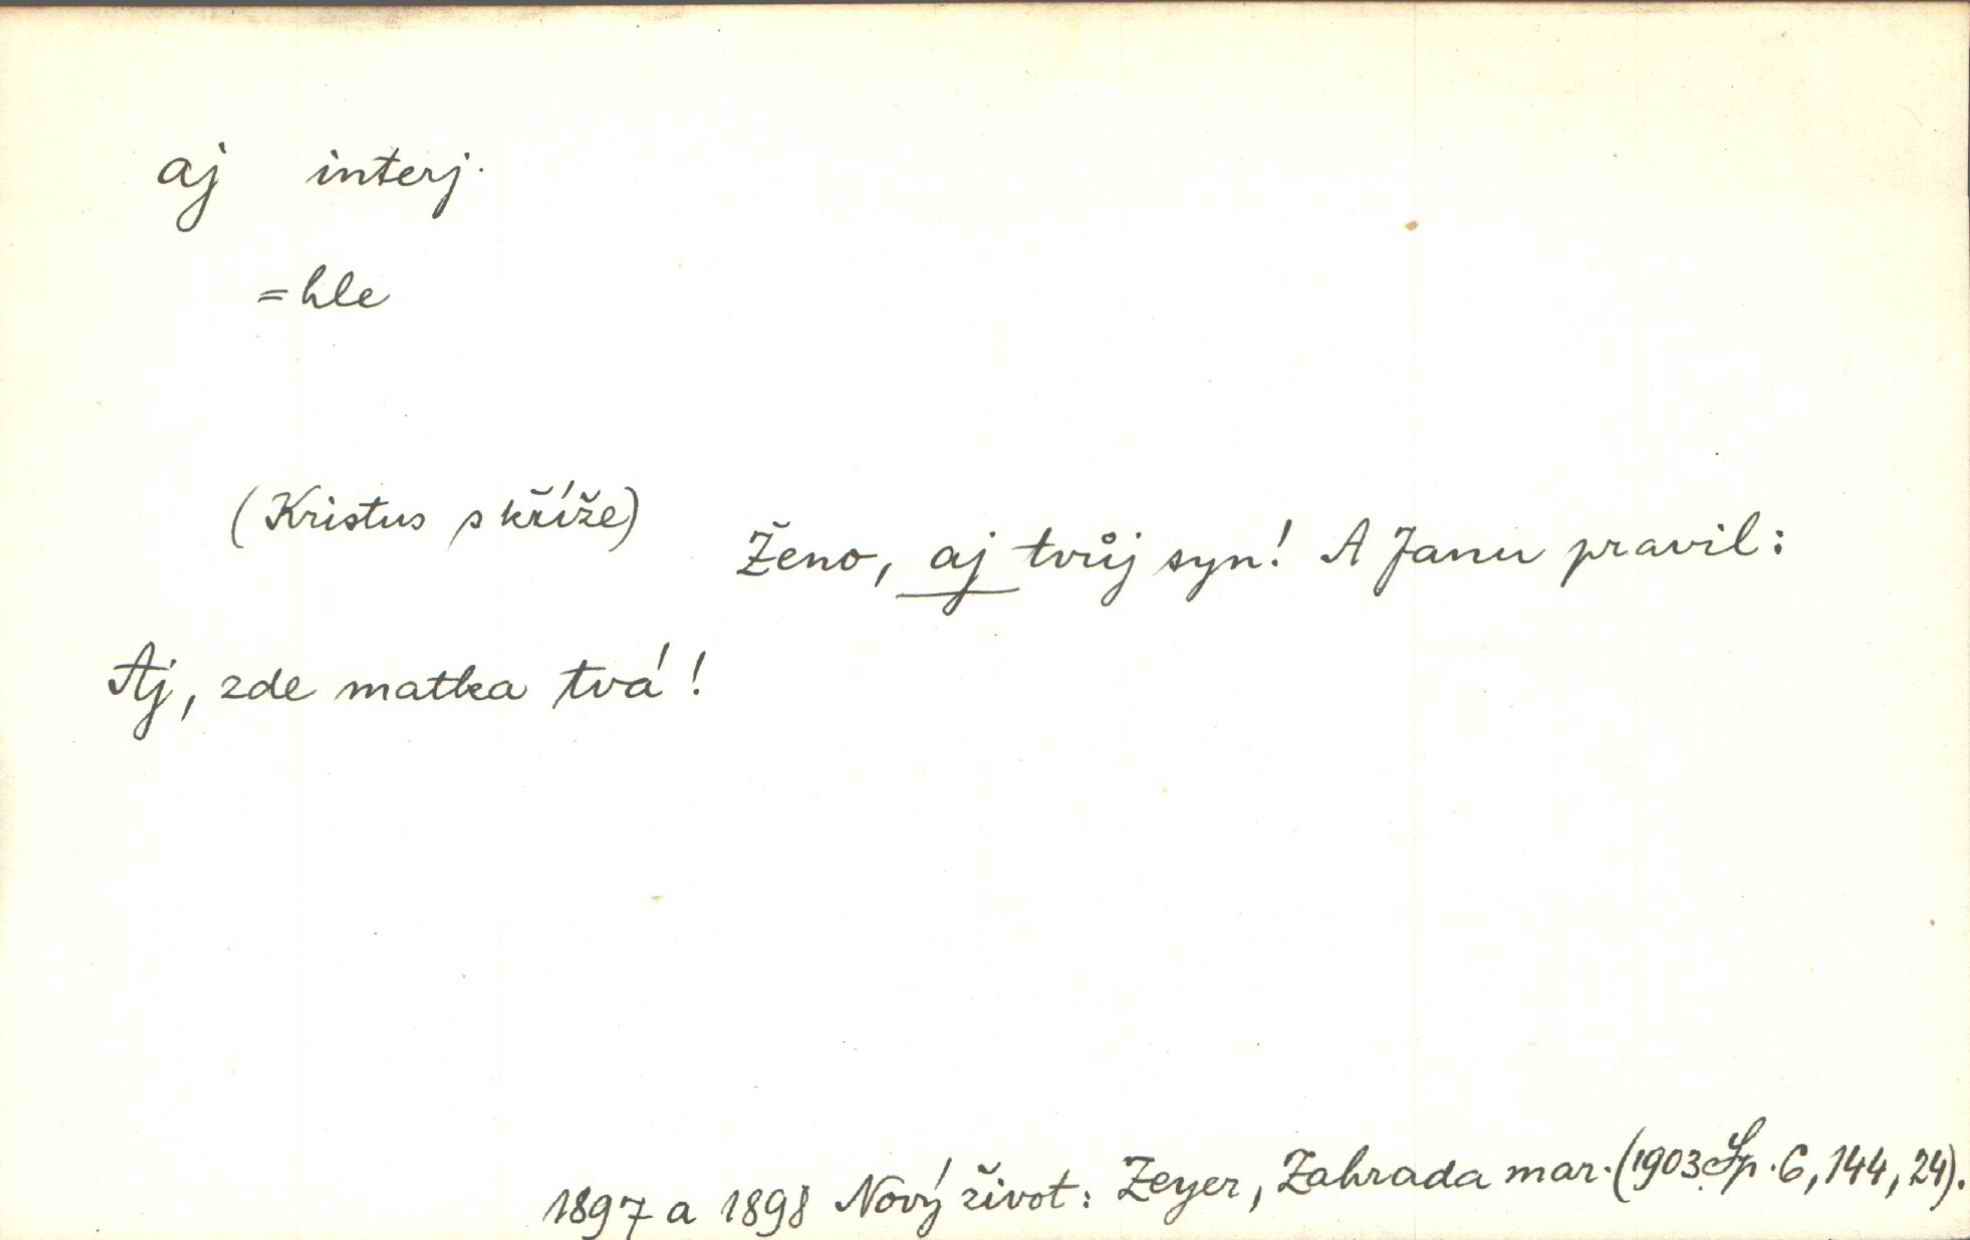 aj interj.
= hle
(Kristus s kříže) Ženo, aj tvůj syn! A Janu pravil:
Aj, zde matka tvá!
1897 a 1898 Nový život: Zeyer, Zahrada mar. (1903 Sp. 6, 144, 24).